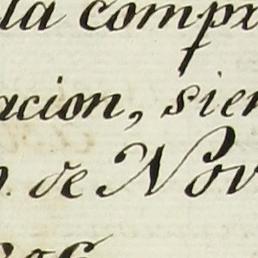 la compr
acion, sien
de Nov